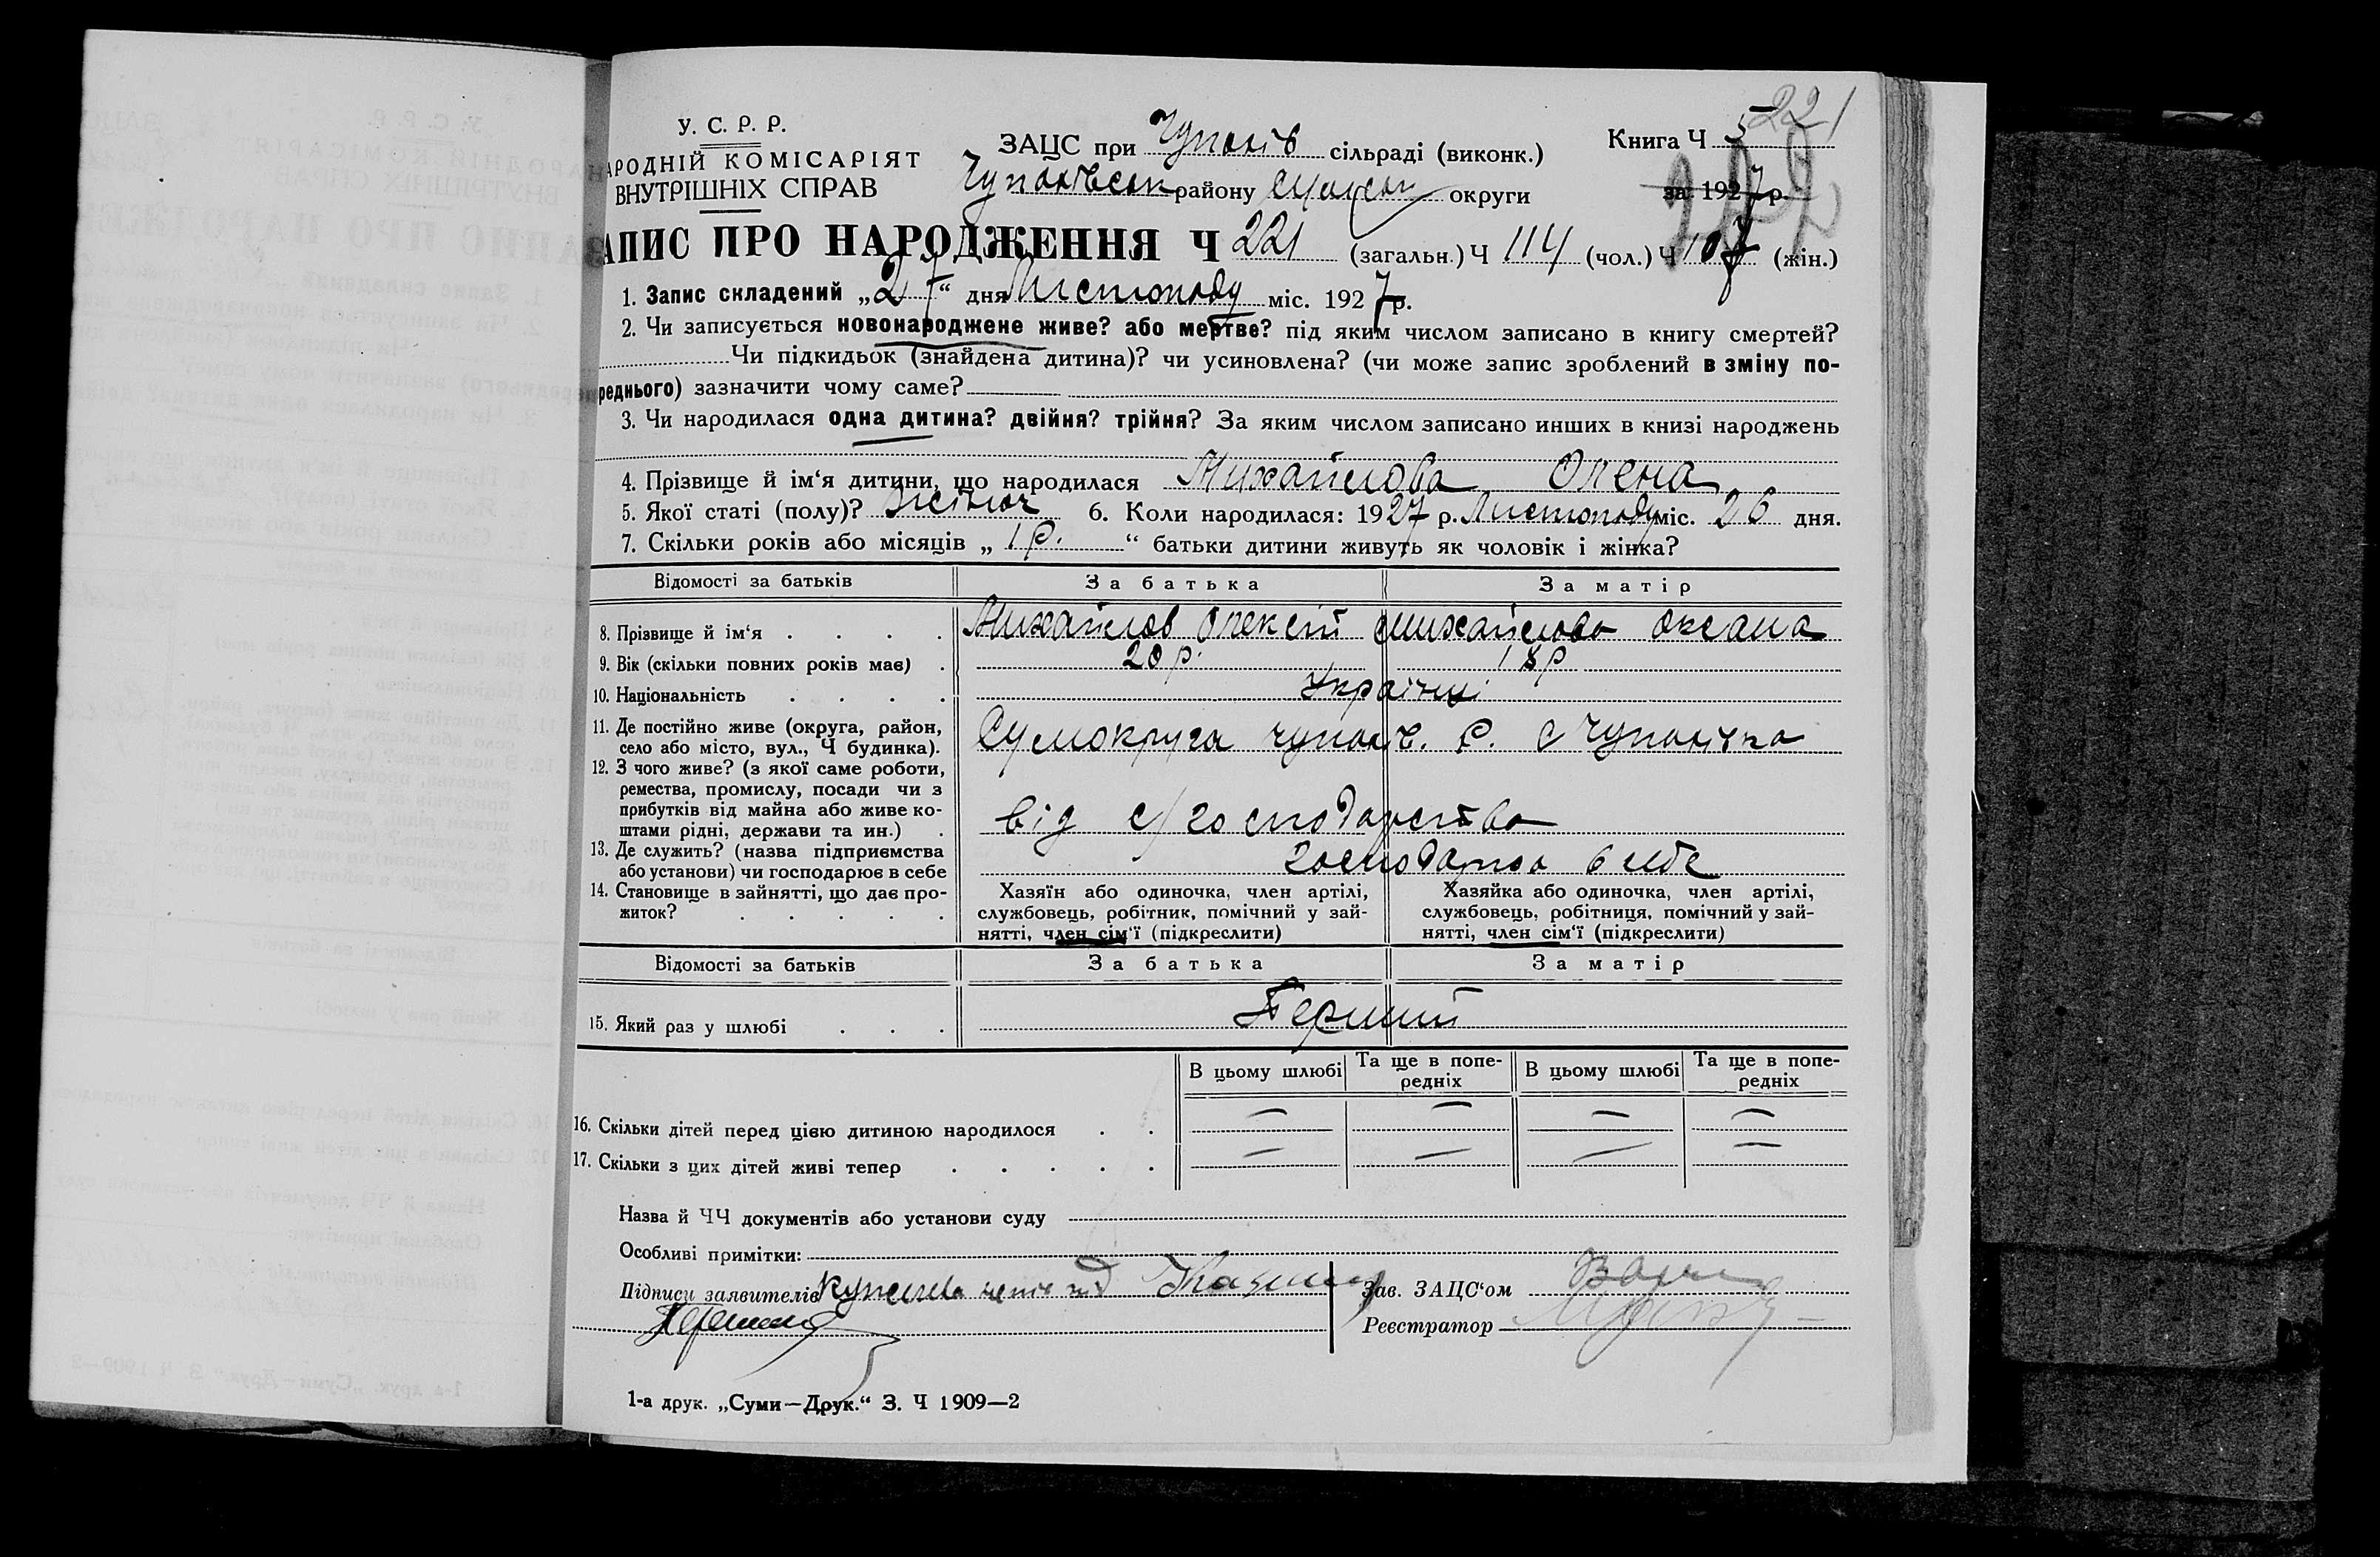 221
У. С. Р. Р.
НАРОДНІЙ КОМІСАРІЯТ
ВНУТРІШНІХ СПРАВ
ЗАЦС при Чупахів сільраді (виконк.)
Чупахівськ району Сумськ округи
Книга Ч 5
за 1927 р.
ЗАПИС ПРО НАРОДЖЕННЯ Ч 221 (загальн.) Ч 114 (чол.) Ч 107 (жін.)
1. Запис складений „27“ дня Листопаду міс. 1927 р.
2. Чи записується новонароджене живе? або мертве? під яким числом записано в книгу смертей?
Чи підкидьок (знайдена дитина)? чи усиновлена? (чи може запис зроблений в зміну по-
реднього) зазначити чому саме?
3. Чи народилася одна дитина? двійня? трійня? За яким числом записано инших в книзі народжень
4. Прізвище й ім‘я дитини, що народилася Михайлова Олена
5. Якої статі (полу)? Жіноч 6. Коли народилася: 1927 р. Листопаду міс. 26 дня.
7. Скільки років або місяців „ 1 р. “ батьки дитини живуть як чоловік і жінка?
Відомості за батьків За батька За матір
8. Прізвище й ім‘я Михайлов Олексій Михайлова Оксана
9. Вік (скільки повних років має) 20 р. 18 р
10. Національність Українці
11. Де постійно живе (округа, район,
село або місто, вул., Ч будинка). Сумокруга Чупахів. Р. С Чупахівка
12. З чого живе? (з якої саме роботи,
ремества, промислу, посади чи з
прибутків від майна або живе ко-
штами рідні, держави та ин.) від с/господарства
13. Де служить? (назва підприємства
або установи) чи господарює в себе господарюа в себе
14. Становище в зайнятті, що дає про-
житок?
Хазяїн або одиночка, член артілі,
службовець, робітник, помічний у зай-
нятті, член сім‘ї (підкреслити)
Хазяйка або одиночка, член артілі,
службовець, робітниця, помічний у зай-
нятті, член сім‘ї (підкреслити)
Відомості за батьків За батька За матір
15. Який раз у шлюбі Перший
В цьому шлюбі Та ще в попе-
редніх В цьому шлюбі Та ще в попе-
редніх
16. Скільки дітей перед цією дитиною народилося — — — —
17. Скільки з цих дітей живі тепер — — — —
Назва й ЧЧ документів або установи суду
Особливі примітки:
Підписи заявителів
Зав. ЗАЦС‘ом
Реєстратор
1-а друк. „Суми—Друк.“ З. Ч 1909—2